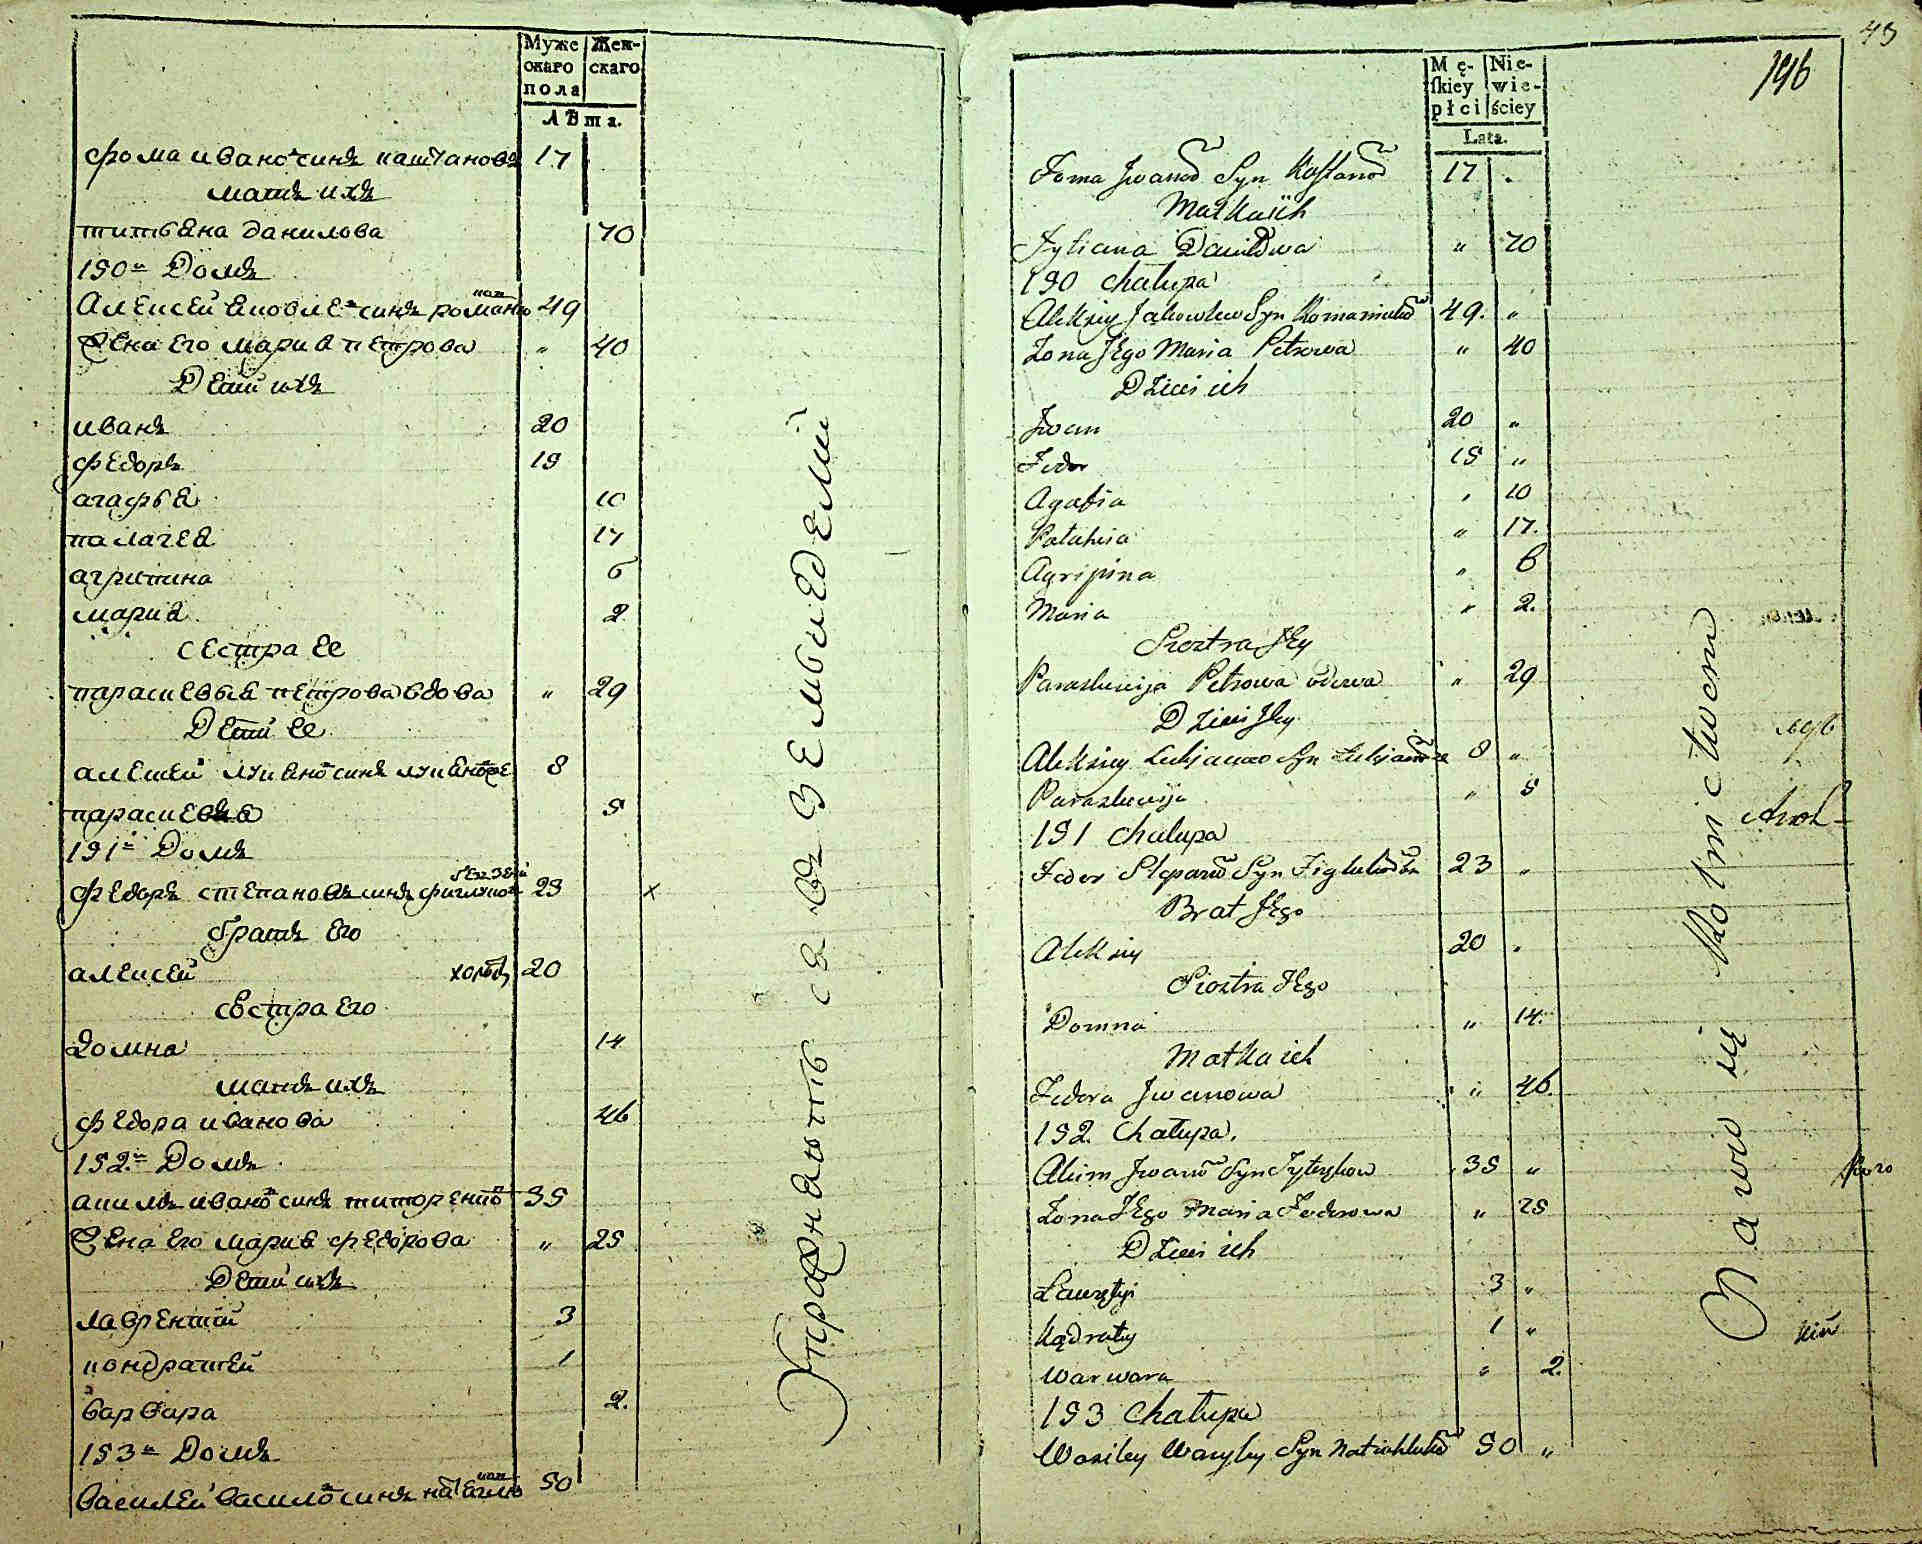 Муже
скаго
пола
Жен-
скаго
Лѣта.
фома иванов синъ каштановъ 17
матъ ихъ
титьяна данилова 70
190й Домъ
Алексей яковлев синъ романюкан 49
Жена его мария петрова „ 40
Дети ихъ
иванъ 20
федоръ 19
агафья 10
палагея 17
агрипина 6
мария 2
сестра ее
параскевья петрова вдова „ 29
Дети ее
алексей лукьянов синъ лукьянове 8
параскевья 9
191й Домъ
федоръ степановъ синъ фиглюков 23 ×
братъ его
алексей холост 20
сестра его
домна 14
матъ ихъ
федора иванова 46
192й Домъ
акимъ иванов синъ титоренко 35
Жена его мария федорова „ 25
Дети ихъ
лаврентий 3
кондратей 1
варвара 2.
193й Домъ
василей василов синъ 50
Упражняются въ земледелии
49
196
Mę-
ſkiey
płci
Nie-
wie-
ściey
Lata.
Foma Jwanow Syn Kasztanow 17 „
Matka ich
Tytiana Daniłowa „ 70
190 Chałupa
Alekſiey Jakowlew Syn Romaniukow 49. „
Zona Jego Maria Petrowa „ 40
Dzieci ich
Jwan 20 „
Fedor 19 „
Agafia „ 10
Patahia „ 17.
Agripina „ 6
Maria „ 2.
Siostra Jey
Paraskiewija Petrowa wdowa „ 29
Dzieci Jey
Alekſiey Łukjanow Syn Łukjanow 8 „
Paraskiewija „ 9
191 Chałupa
Fedor Stepanow Syn Figlukow 23 „
Brat Jego
Alekſiey 20 „
Siostra Jego
Domna „ 14.
Matka ich
Fedora Jwanowa „ 46.
192. Chałupa.
Akim Jwanow Syn Tyterykow 35 „
Zona Jego Maria Fedorowa „ 25
Dzieci ich
Ławryntyi 3 „
Kądraty 1 „
Warwara „ 2.
193 Chałupa
Wasiley Wasyley Syn 50 „
Bawią się Rolnictwem